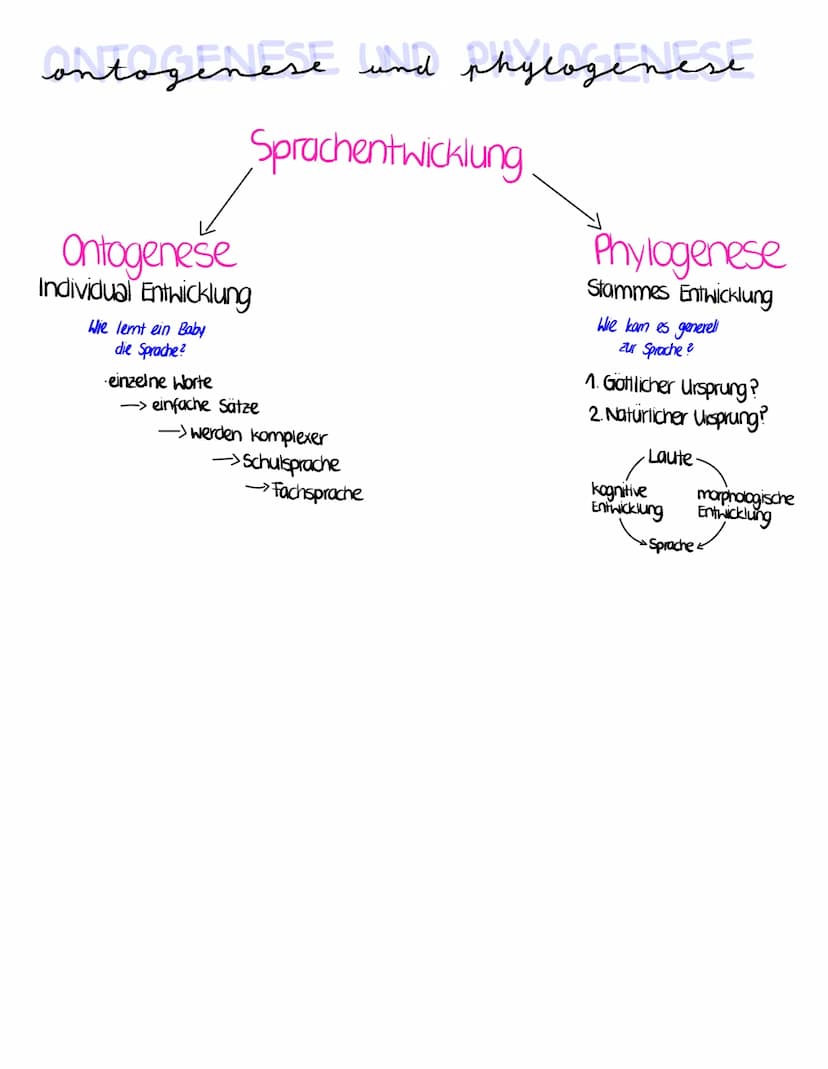 ONTOGENESE UND PHYLOGENESE
ontogenese und phylogenese
Sprachentwicklung
Ontogenese
Individual Entwicklung
Wie lernt ein Baby
die Sprache?
·einzelne Worte
→ einfache Sätze
→ werden komplexer
→ Schulsprache
→ Fachsprache
Phylogenese
Stammes Entwicklung
Wie kam es generell
zur Sprache?
1. Göttlicher Ursprung?
2. Natürlicher Ursprung?
Laute
kognitive
Entwicklung
morphologische
Entwicklung
Sprache